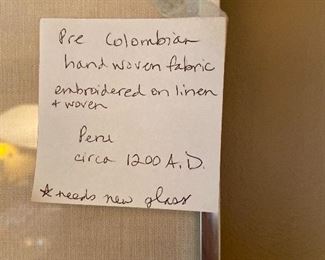 Pre Colombian
hand woven fabric
embroidered on linen
+ woven
Peru
circa 1200 A.D.
*needs new glass